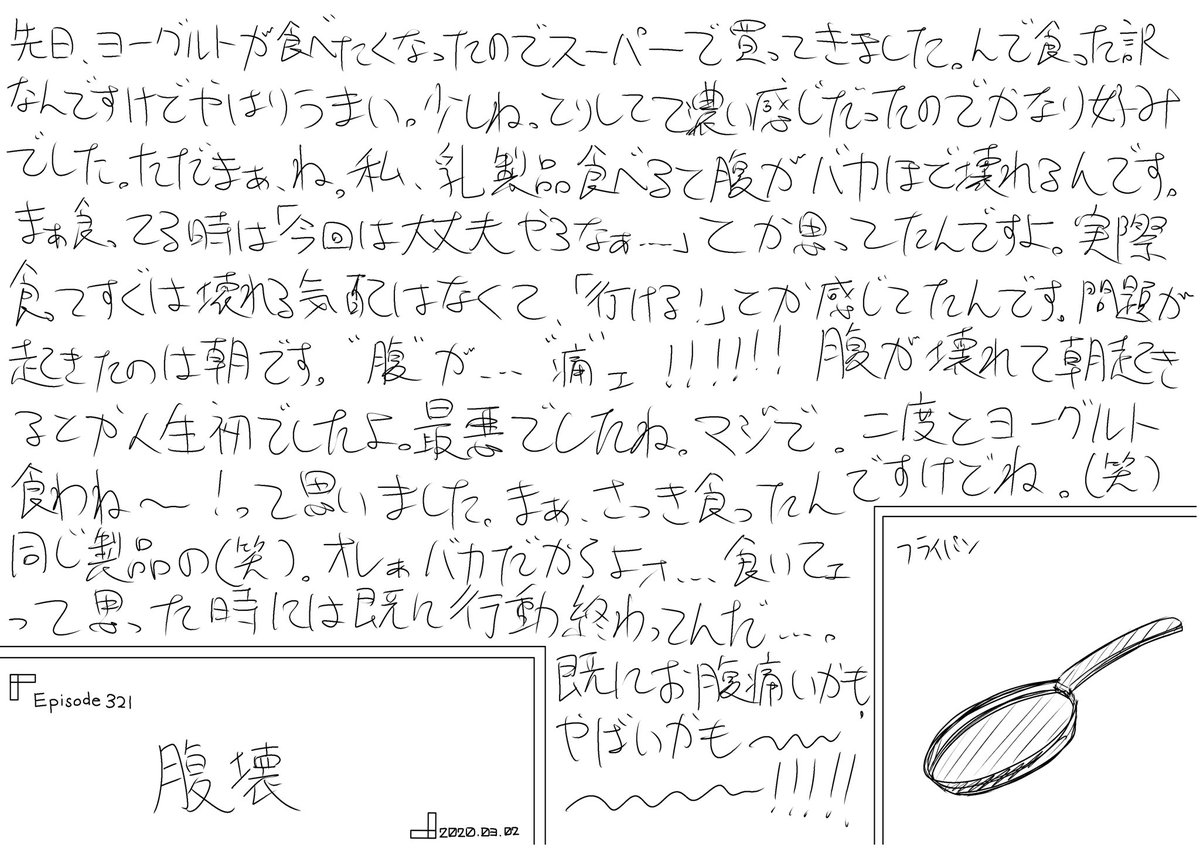 先日、ヨーグルトが食べたくなったのでスーパーで買ってきました。んで食った訳
なんですけどやはりうまい。少しねっとりしてて濃い感じだったのでかなり好み
でした。ただまぁ、ね。私、乳製品食べると腹がバカほど壊れるんです。
まぁ食ってる時は「今回は大丈夫やろなぁ…」とか思ってたんですよ。実際
食ってすぐは壊れる気配はなくて、「行ける!」とか感じてたんです。問題が
起きたのは朝です。"腹"が…"痛"ェ!!!!!!腹が壊れて朝起き
るとか人生初でしたよ。最悪でしたね。マジで。二度とヨーグルト
食わね〜!って思いました。まぁ、さっき食ったん
ですけどね。(笑)
同じ製品の(笑)。オレぁバカだからよォ…食いてェ
って思った時には既に行動終わってんだ…。
既にお腹痛いかも、
やばいかも〜〜
〜〜〜!!!!!
フライパン
Episode 321
腹壊
2020.03.02